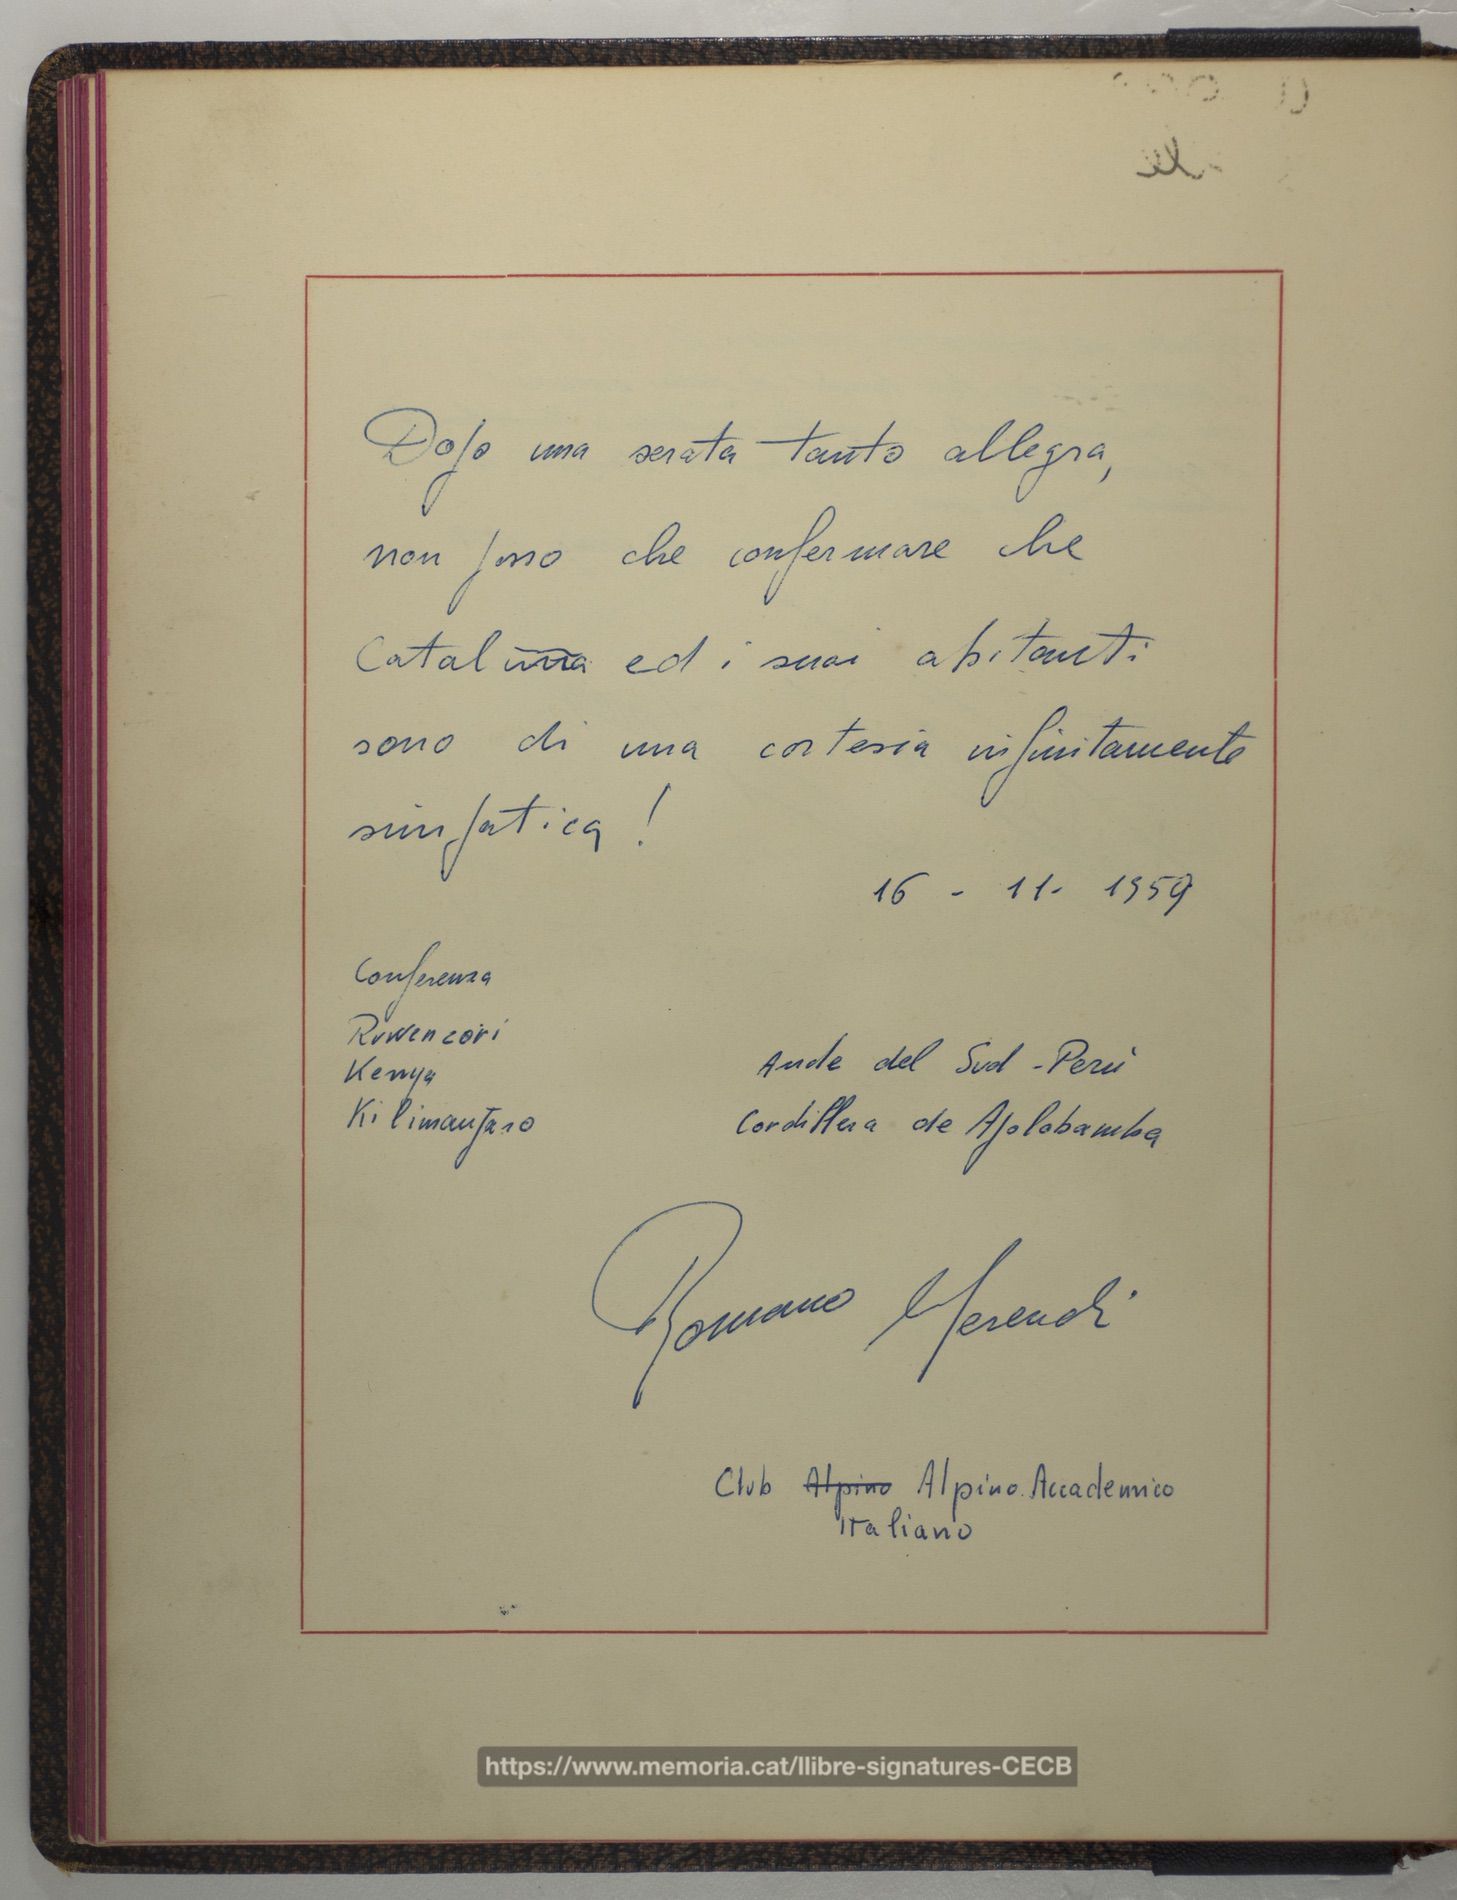 Dopo una serata tanto allegra,
non posso che confermare che
Cataluña ed i suoi abitanti
sono di una cortesia infinitamente
simpatica!
16 - 11 - 1959
Conferenza
Ruwenzori
Kenya
Kilimanjaro
Ande del Sud - Perù
Cordillera de Apolobamba
Romano Merendi
Club Alpino Alpino Accademico
Italiano
https://www.memoria.cat/llibre-signatures-CECB